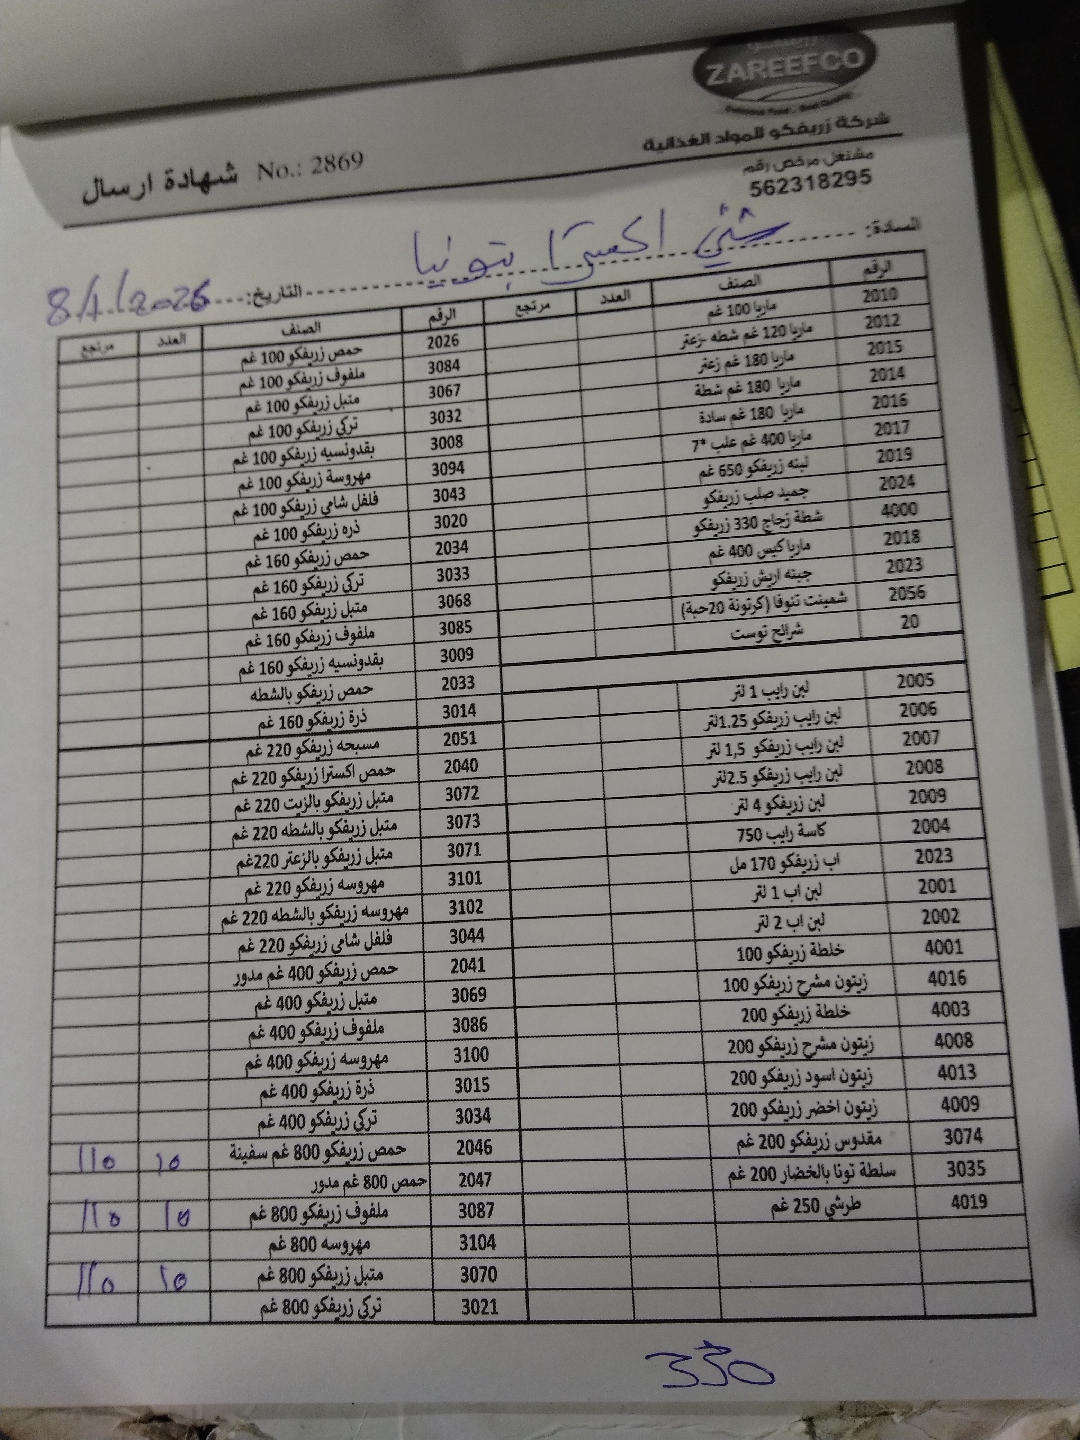 ZAREEFCO
شركة زريفكو للمواد الغذائية
مشتغل مرخص رقم
562318295
شهادة ارسال No.: 2869
السادة:
التاريخ: 8/1/2026
الرقم الصنف العدد مرتجع
2010 ماريا 100 غم
2012 ماريا 120 غم شطه -زعتر
2015 ماريا 180 غم زعتر
2014 ماريا 180 غم شطة
2016 ماريا 180 غم سادة
2017 ماريا 400 غم علب *7
2019 لبنه زريفكو 650 غم
2024 جميد صلب زريفكو
4000 شطة زجاج 330 زريفكو
2018 ماريا كيس 400 غم
2023 جبنه اريش زريفكو
2056 شمينت تنوفا (كرتونة 20حبة)
20 شرائح توست
2005 لبن رايب 1 لتر
2006 لبن رايب زريفكو 1.25لتر
2007 لبن رايب زريفكو 1,5 لتر
2008 لبن رايب زريفكو 2.5لتر
2009 لبن زريفكو 4 لتر
2004 كاسة رايب 750
2023 اب زريفكو 170 مل
2001 لبن اب 1 لتر
2002 لبن اب 2 لتر
4001 خلطة زريفكو 100
4016 زيتون مشرح زريفكو 100
4003 خلطة زريفكو 200
4008 زيتون مشرح زريفكو 200
4013 زيتون اسود زريفكو 200
4009 زيتون اخضر زريفكو 200
3074 مقدوس زريفكو 200 غم
3035 سلطة تونا بالخضار 200 غم
4019 طرشي 250 غم
الرقم الصنف العدد مرتجع
2026 حمص زريفكو 100 غم
3084 ملفوف زريفكو 100 غم
3067 متبل زريفكو 100 غم
3032 تركي زريفكو 100 غم
3008 بقدونسيه زريفكو 100 غم
3094 مهروسة زريفكو 100 غم
3043 فلفل شامي زريفكو 100 غم
3020 ذره زريفكو 100 غم
2034 حمص زريفكو 160 غم
3033 تركي زريفكو 160 غم
3068 متبل زريفكو 160 غم
3085 ملفوف زريفكو 160 غم
3009 بقدونسيه زريفكو 160 غم
2033 حمص زريفكو بالشطه
3014 ذرة زريفكو 160 غم
2051 مسبحه زريفكو 220 غم
2040 حمص اكسترا زريفكو 220 غم
3072 متبل زريفكو بالزيت 220 غم
3073 متبل زريفكو بالشطه 220 غم
3071 متبل زريفكو بالزعتر 220غم
3101 مهروسه زريفكو 220 غم
3102 مهروسه زريفكو بالشطه 220 غم
3044 فلفل شامي زريفكو 220 غم
2041 حمص زريفكو 400 غم مدور
3069 متبل زريفكو 400 غم
3086 ملفوف زريفكو 400 غم
3100 مهروسه زريفكو 400 غم
3015 ذرة زريفكو 400 غم
3034 تركي زريفكو 400 غم
2046 حمص زريفكو 800 غم سفينة 10 110
2047 حمص 800 غم مدور
3087 ملفوف زريفكو 800 غم 10 110
3104 مهروسه 800 غم
3070 متبل زريفكو 800 غم 10 110
3021 تركي زريفكو 800 غم
330